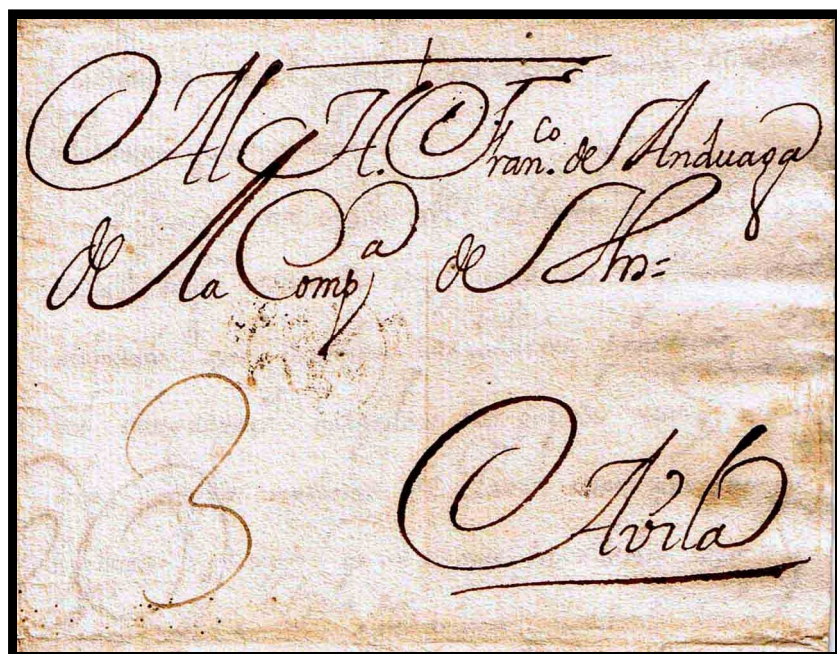 Al H. Fran.co de Anduaga
de la Comp.a de Jhs=
3
Avila